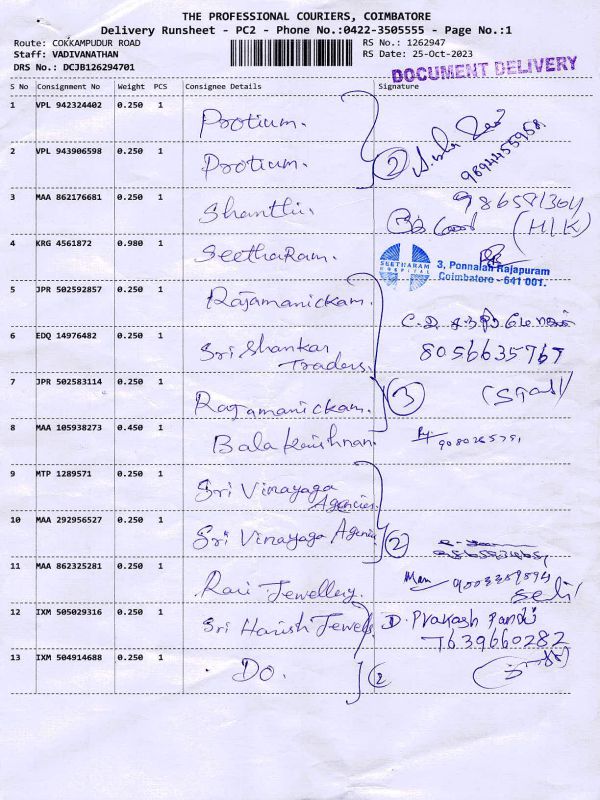 THE PROFESSIONAL COURIERS, COIMBATORE
Delivery Runsheet - PC2 - Phone No.:0422-3505555 - Page No.:1
Route: COKKAMPUDUR ROAD RS No.: 1262947
Staff: VADIVANATHAN RS Date: 25-Oct-2023
DRS No.: DCJB126294701 DOCUMENT DELIVERY
S No Consignment No Weight PCS Consignee Details Signature
1 VPL 942324402 0.250 1 Protium.
2 VPL 943906598 0.250 1 Protium. 2 9894455958.
3 MAA 862176681 0.250 1 Shanthi. (H/K)
4 KRG 4561872 0.980 1 SeethaRam.
SEETHARAM HOSPITAL 3, Ponnaiah Rajapuram
Coimbatore - 641 001.
5 JPR 502592857 0.250 1 Rajamanickam.
6 EDQ 14976482 0.250 1 Sri Shankar Traders. 8056635767
7 JPR 502583114 0.250 1 Rajamanickam. 3
8 MAA 105938273 0.450 1 Balakrishnan.
9 MTP 1289571 0.250 1 Sri Vinayaga Agencies
10 MAA 292956527 0.250 1 Sri Vinayaga 2
11 MAA 862325281 0.250 1 Ravi Jewellery.
12 IXM 505029316 0.250 1 Sri Harish Jewels. D. Prakash Pandi
7639660282
13 IXM 504914688 0.250 1 Do. 2